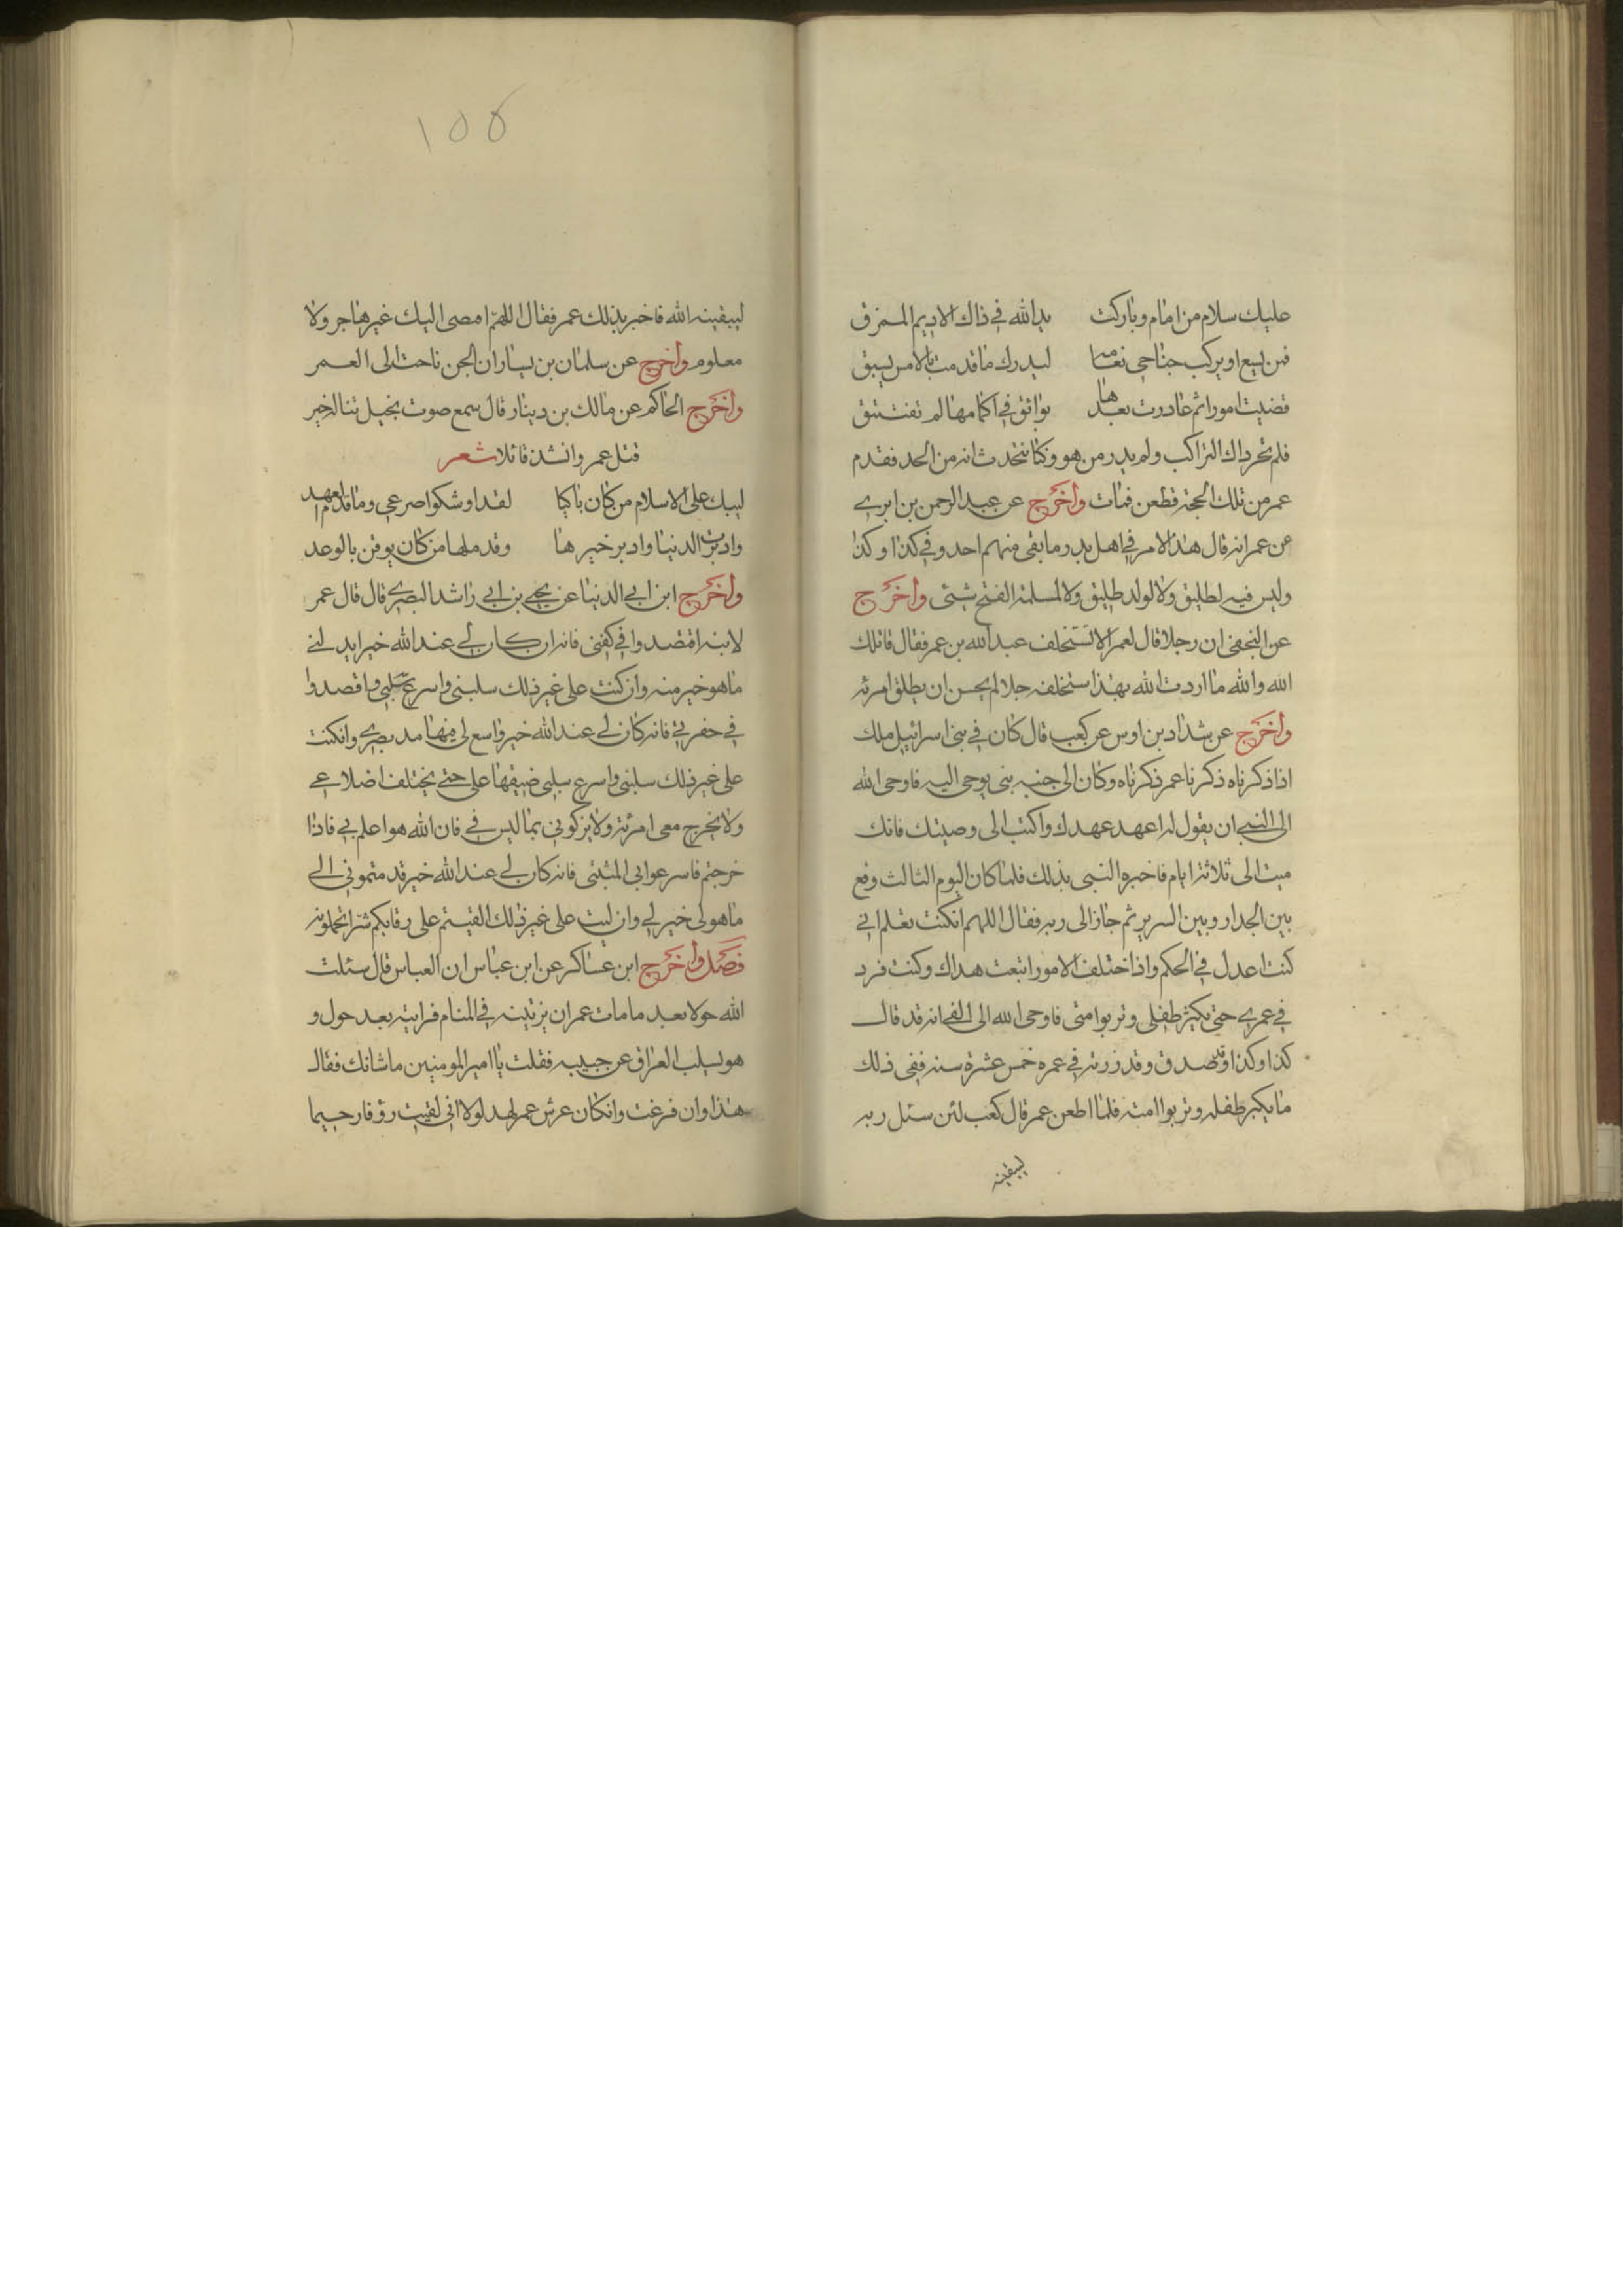 عليك سلام من امام وباركت يد الله في ذاك الاديم الممزق
فمن يسع او يركب جناحي نعامة ليدرك ما قدمت بالامس يسبق
قضيت امورا ثم غادرت بعدها بوائق في اكمامها لم تفتتق
فلم يحر ذاك الراكب ولم يدر من هو وكنا نتحدث انه من الجد فقدم
عمر من تلك الحجة فطعن فمات واخرج عن عبد الرحمن بن ابري
عن عمر انه قال هذا الامر في اهل بدر ما بقى منهم احد وفي كذا وكذا
وليس فيه لطليق ولا لولد طليق ولا لمسلمة الفتح شئى واخرج
عن النخعى ان رجلا قال لعمر الا تستخلف عبد الله بن عمر فقال قاتلك
الله والله ما اردت الله بهذا استخلفه رجلا لم يحسن ان يطلق امرئه
واخرج عن شداد بن اوس عن كعب قال كان في بنى اسرائيل ملك
اذا ذكرناه ذكرنا عمر ذكرناه وكان الى جنبه بنى يوحى اليه فاوحى الله
الى النبي ان يقول له اعهد عهدك واكتب الى وصيتك فانك
ميت الى ثلاثة ايام فاخبره النبى بذلك فلما كان اليوم الثالث وقع
بين الجدار وبين السرير ثم جاز الى ربه فقال اللهم انكنت تعلم اني
كنت اعدل في الحكم واذا اختلف الامور اتبعت هداك وكنت فزد
في عمري حتى يكبر طفلى وتربوا متى فاوحى الله الى النبي انه قد قال
كذا وكذا وقد صدق وقد زدته في عمره خمس عشرة سنة ففى ذلك
ما يكبر طفله وتربوا امته فلما اطعن عمر قال كعب لئن سئل ربه
ليبقينه
١٥٥
ليبقينه الله فاخبر بذلك عمر فقال اللهم امضى اليك غير هاجر ولا
معلوم واخرج عن سلمان بن يسار ان الجن ناحت الى العمر
واخرج الحاكم عن مالك بن دينار قال سمع صوت بجبل تنالة خير
قتل عمر وانشد قائلا شعر
ليبك على الاسلام من كان باكيا لقد اوشكوا صرعى وما قدم العهد
وادبرت الدنيا وادبر خيرها وقد ملها من كان يوقن بالوعد
واخرج ابن ابي الدنيا عن يحيى بن ابي راشد البصري قال قال عمر
لابنه اقتصدوا في كفنى فانه ان كان لي عند الله خير ابدلنى
ما هو خير منه وان كنت على غير ذلك سلبنى واسرع سلبى واقصدوا
في حفرتي فانه كان لي عند الله خير واسع لى فيها مد بصري وانكنت
على غير ذلك سلبنى واسرع سلبى ضيقها على حتى يختلف اضلاعي
ولا يخرج معى امرئة ولا يزكونى بما ليس في فان الله هو اعلم بي فاذا
خرجتم فاسرعوا بى المشئى فانه كان لي عند الله خير قدمتمونى الى
ما هو لى خير لي وان ليت على غير ذلك القيتم على رقابكم شرا تحملونه
فصل واخرج ابن عساكر عن ابن عباس ان العباس قال سئلت
الله حولا بعد ما مات عمر ان يرينيه في المنام فرايته بعد حول و
هو يسلب العراق عن جبيبه فقلت يا امير المومنين ما شانك فقال
هذا وان فرغت وانكان عرش عمر لهد لولا انى لقيت رؤفا رحيما